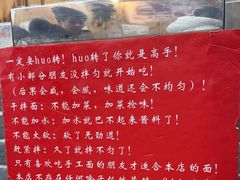 一定要huo转！huo转了你就是高手！
有小部会朋友没拌匀就开始吃！
（后果会咸，会腻，味道还会不均匀）！
干拌面：不能加菜，加菜抢味！
不能加水：加水就巴不起来酱料了！
不能太软：软了无劲道！
起菜拌：久了就拌不匀了！
只有喜欢吃手工面的朋友才适合本店的面！